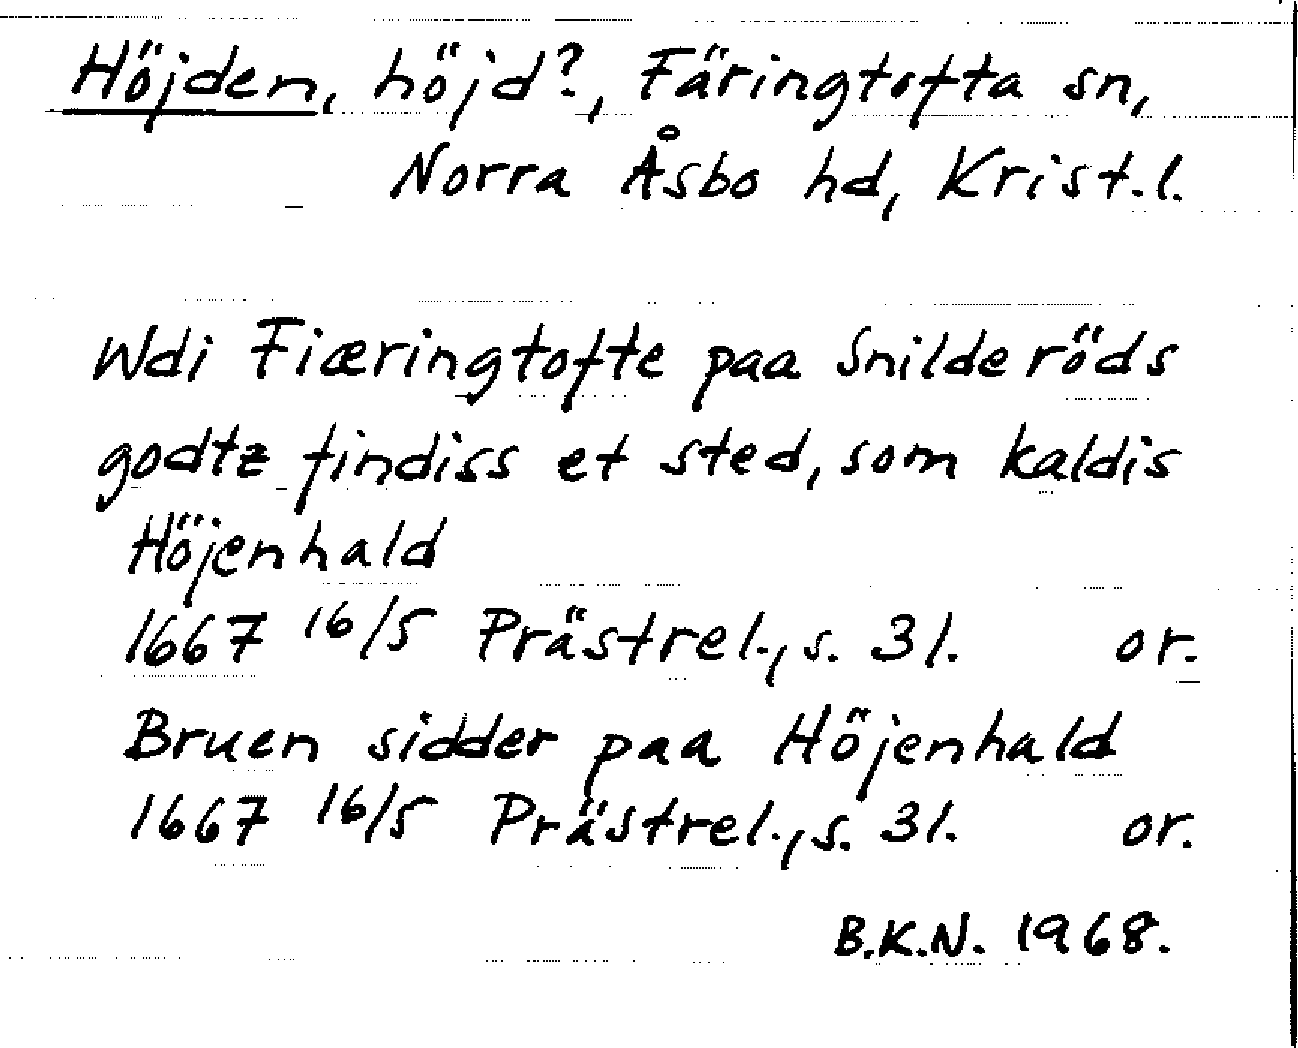 Höjden, höjd?, Färingtofta sn,
Norra Åsbo hd, Krist.l.
Wdi Fiæringtofte paa Snilderöds
godtz findiss et sted, som kaldis
Höjenhald
1667 16/5 Prästrel., s. 31. or.
Bruen sidder paa Höjenhald
1667 16/5 Prästrel., s. 31. or.
B.K.N. 1968.